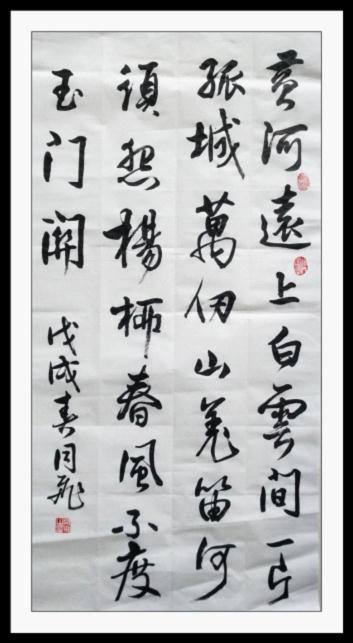 黄河遠上白雲間一片
孤城萬仞山羌笛何
須怨楊柳春風不度
玉门關
戊戌春月飛